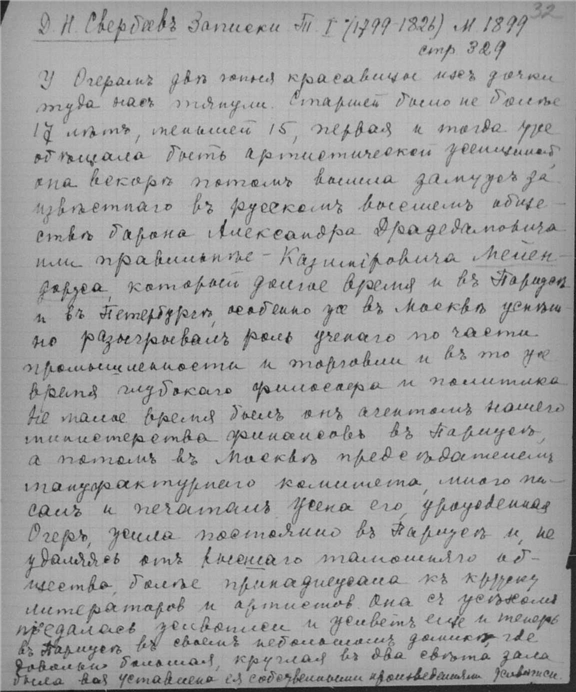 32
Д. Н. Свербеевъ Записки Т. I (1799-1826) М 1899
стр 329
У Огеръ двѣ юныя красавицы ихъ дочки
туда насъ тянули. Старшей было не болѣе
17 лѣтъ, меньшей 15, первая и тогда уже
обѣщала быть артистической женщиной,
она вскорѣ потомъ вышла замужъ за
извѣстнаго въ русскомъ высшемъ обще-
ствѣ барона Александра Драдедамовича
или правильнѣе - Казимировича Мейен-
дорфа, который долгое время и въ Парижѣ
и въ Петербургѣ, особенно же въ Москвѣ успѣш-
но разыгрывалъ роль ученаго по части
промышленности и торговли и въ то же
время глубокаго философа и политика
Не малое время былъ онъ агентомъ нашего
министерства финансовъ въ Парижѣ,
а потомъ въ Москвѣ предсѣдателемъ
мануфактурнаго комитета, много пи-
салъ и печаталъ. Жена его, урожденная
Огеръ, жила постоянно въ Парижѣ и, не
удаляясь отъ высшаго тамошняго об-
щества, болѣе принадлежала къ кружку
литераторов и артистов. Она съ успѣхомъ
предалась живописи и живетъ еще и теперь
въ Парижѣ въ своемъ небольшомъ домикѣ, где
довольно большая, круглая въ два свѣта зала
была вся уставлена ея собственными произведеніями живописи.